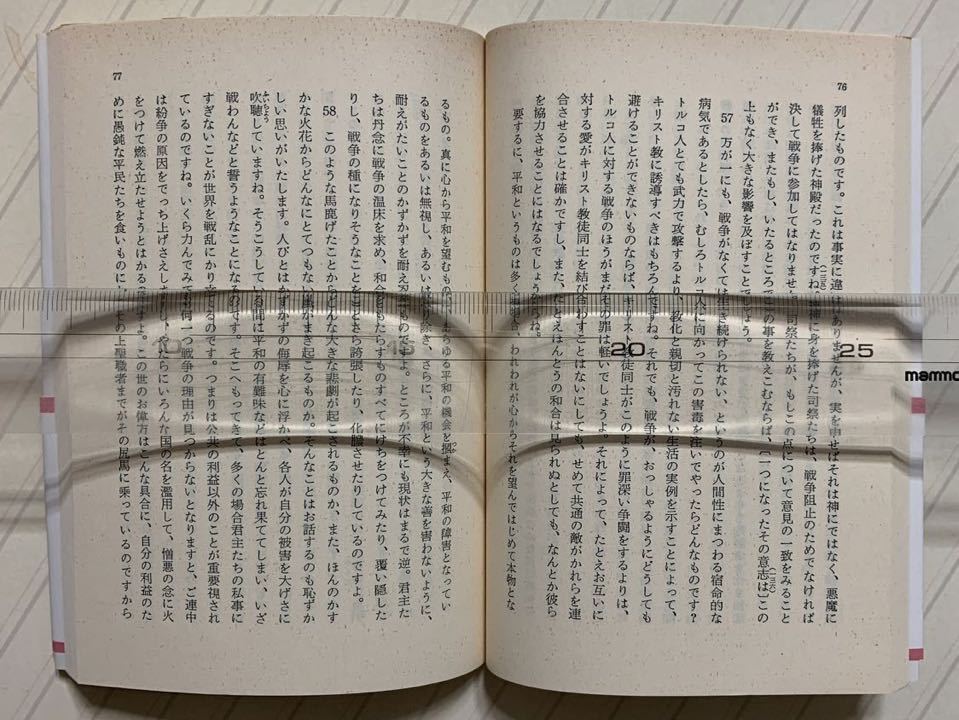 76
列したものです。これは事実に違いありませんが、実を申せばそれは神にではなく、悪魔に
犠牲を捧げた神殿だったのですね。神に身を捧げた司祭たちは、戦争阻止のためでなければ
決して戦争に参加してはなりません。司祭たちが、もしこの点について意見の一致をみること
ができ、またもし、いたるところでこの事を教えこむならば、[一つになったその意志は]この
上もなく大きな影響を及ぼすことでしょう。
57 万が一にも、戦争がなくては生き続けられない、というのが人間性にまつわる宿命的な
病気であるとしたら、むしろトルコ人に向かってこの害毒を注いでやったらどんなものです?
トルコ人とても武力で攻撃するより、教化と親切と汚れない生活の実例を示すことによって、
キリスト教に誘導すべきはもちろんですね。それでも、戦争が、おっしゃるようにどうしても
避けることができないものならば、キリスト教徒同士がこのように罪深い争闘をするよりは、
トルコ人に対する戦争のほうがまだその罪は軽いでしょうよ。それによって、たとえお互いに
対する愛がキリスト教徒同士を結び合わすことはないにしても、せめて共通の敵がかれらを連
合させることは確かですし、また、たとえほんとうの和合は見られぬとしても、なんとか彼ら
を協力させることにはなるでしょうからね。
要するに、平和というものは多くの場合、われわれが心からそれを望んではじめて本物とな
77
るもの。真に心から平和を望むものは、あらゆる平和の機会を摑まえ、平和の障害となってい
るものをあるいは無視し、あるいは取り除き、さらに、平和という大きな善を害わないように、
耐えがたいことのかずかずを耐え忍ぶものですよ。ところが不幸にも現状はまるで逆。君主た
ちは丹念に戦争の温床を求め、和合をもたらすものすべてにけちをつけてみたり、覆い隠した
りし、戦争の種になりそうなことをことさら誇張したり、化膿させたりしているのですよ。
58 このような馬鹿げたことからどんな大きな悲劇が起こされるものか、また、ほんのかす
かな火花からどんなにとてつもない嵐がまき起こるものか。そんなことはお話するのも恥ずか
しい思いがいたします。人びとはかずかずの侮辱を心に浮かべ、各人が自分の被害を大げさに
吹聴していますね。そうこうしている間に平和の有難味などはとんと忘れ果ててしまい、いざ
戦わんなどと誓うようなことになるのです。そこへもってきて、多くの場合君主たちの私事に
すぎないことが世界を戦乱にかり立てるのです。つまりは公共の利益以外のことが重要視され
ているのですね。いくら力んでみても何一つ戦争の理由が見つからないとなりますと、ご連中
は紛争の原因をでっち上げさえしますし、やたらにいろんな国の名を濫用して、憎悪の念に火
をつけて燃え立たせようとはかるのですよ。この世のお偉方はこんな具合に、自分の利益のた
めに愚鈍な平民たちを食いものにし、その上聖職者までがその尻馬に乗っているのですから
10
15
20
25